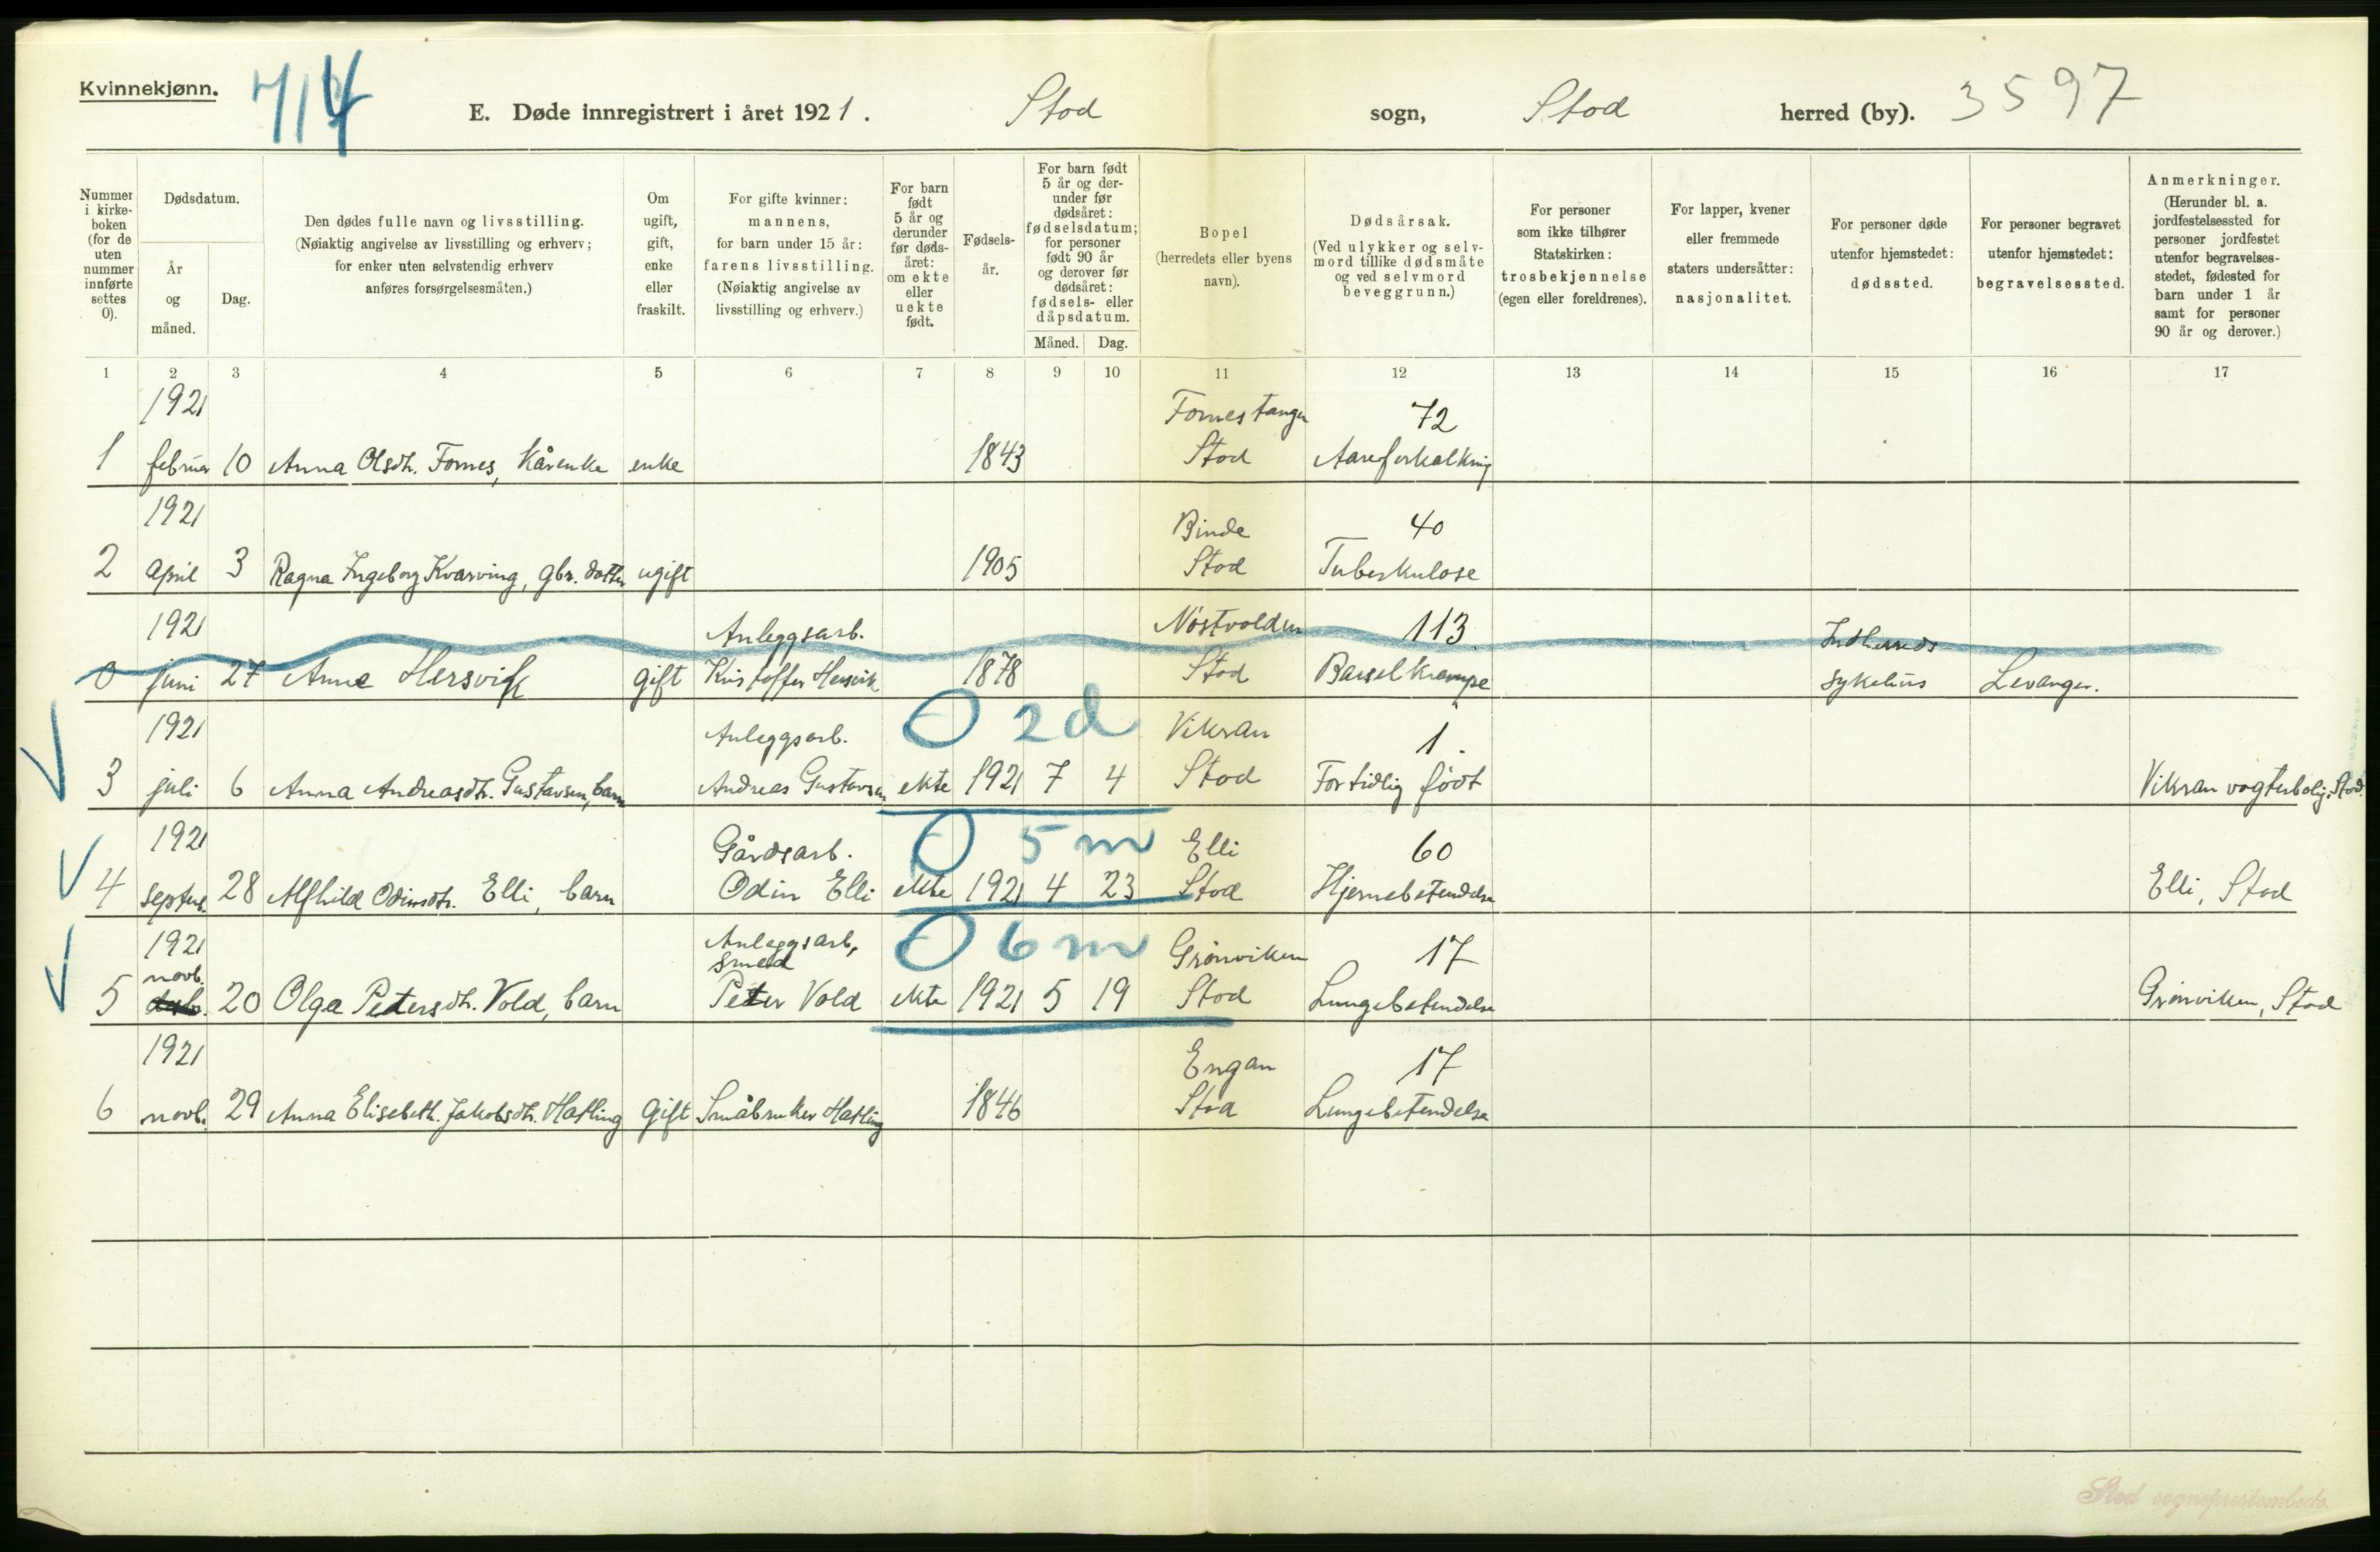 Kvinnekjønn.
714
E. Døde innregistrert i året 1921. Stod sogn, Stod herred (by). 3597
Nummer i kirke-
boken
(for de
uten
nummer
innførte
settes
0).
Dødsdatum.
År
og
måned.
Dag.
Den dødes fulle navn og livsstilling.
(Nøiaktig angivelse av livsstilling og erhverv;
for enker uten selvstendig erhverv
anføres forsørgelsesmåten.)
Om
ugift,
gift,
enke
eller
fraskilt.
For gifte kvinner:
mannens,
for barn under 15 år:
farens livsstilling.
(Nøiaktig angivelse av
livsstilling og erhverv.)
For barn
født
5 år og
derunder
før døds-
året:
om ekte
eller
uekte
født.
Fødsels-
år.
For barn født
5 år og der-
under før
dødsåret:
fødselsdatum;
for personer
født 90 år
og derover før
dødsåret:
fødsels- eller
dåpsdatum.
Måned. Dag.
Bopel
(herredets eller byens
navn).
Dødsårsak.
(Ved ulykker og selv-
mord tillike dødsmåte
og ved selvmord
beveggrunn.)
For personer
som ikke tilhører
Statskirken:
trosbekjennelse
(egen eller foreldrenes).
For lapper, kvener
eller fremmede
staters undersåtter:
nasjonalitet.
For personer døde
utenfor hjemstedet:
dødssted.
For personer begravet
utenfor hjemstedet:
begravelsessted.
Anmerkninger.
(Herunder bl. a.
jordfestelsessted for
personer jordfestet
utenfor begravelses-
stedet, fødested for
barn under 1 år
samt for personer
90 år og derover.)
1 2 3 4 5 6 7 8 9 10 11 12 13 14 15 16 17
1921 Fornestangen 72
1 februar 10 Anna Olsdtr. Fornes, Kårenke enke 1843 Stod Aareforkalkning
1921 Binde 40
2 april 3 Ragna Ingeborg Kvarving, gbr. datter ugift 1905 Stod Tuberkulose
1921 Anleggsarb. Nøstvolden 113 Indherreds
0 juni 27 Anne Hersvik gift Kristoffer Hersvik 1878 Stod Barselkrampe sykehus Levanger.
1921 Anleggsarb. 0 2d Vikran 1.
3 juli 6 Anna Andreasdtr. Gustavsen, barn Andreas Gustavsen ekte 1921 7 4 Stod For tidlig født Vikran vogterbolig, Stod.
1921 Gårdsarb. 0 5 m Elli 60
4 septbr. 28 Alfhild Odinsdtr. Elli, barn Odin Elli ekte 1921 4 23 Stod Hjernebetendelse Elli, Stod
1921 Anleggsarb, 0 6 m Grønviken 17
novb. smed
5 20 Olga Petersdtr. Vold, barn Peter Vold ekte 1921 5 19 Stod Lungebetendelse Grønviken, Stod
1921 Engan 17
6 novb. 29 Anna Elisabeth Jakobsdtr. Hatling gift Småbruker Hatling 1846 Stod Lungebetendelse
Stod sogneprestembede